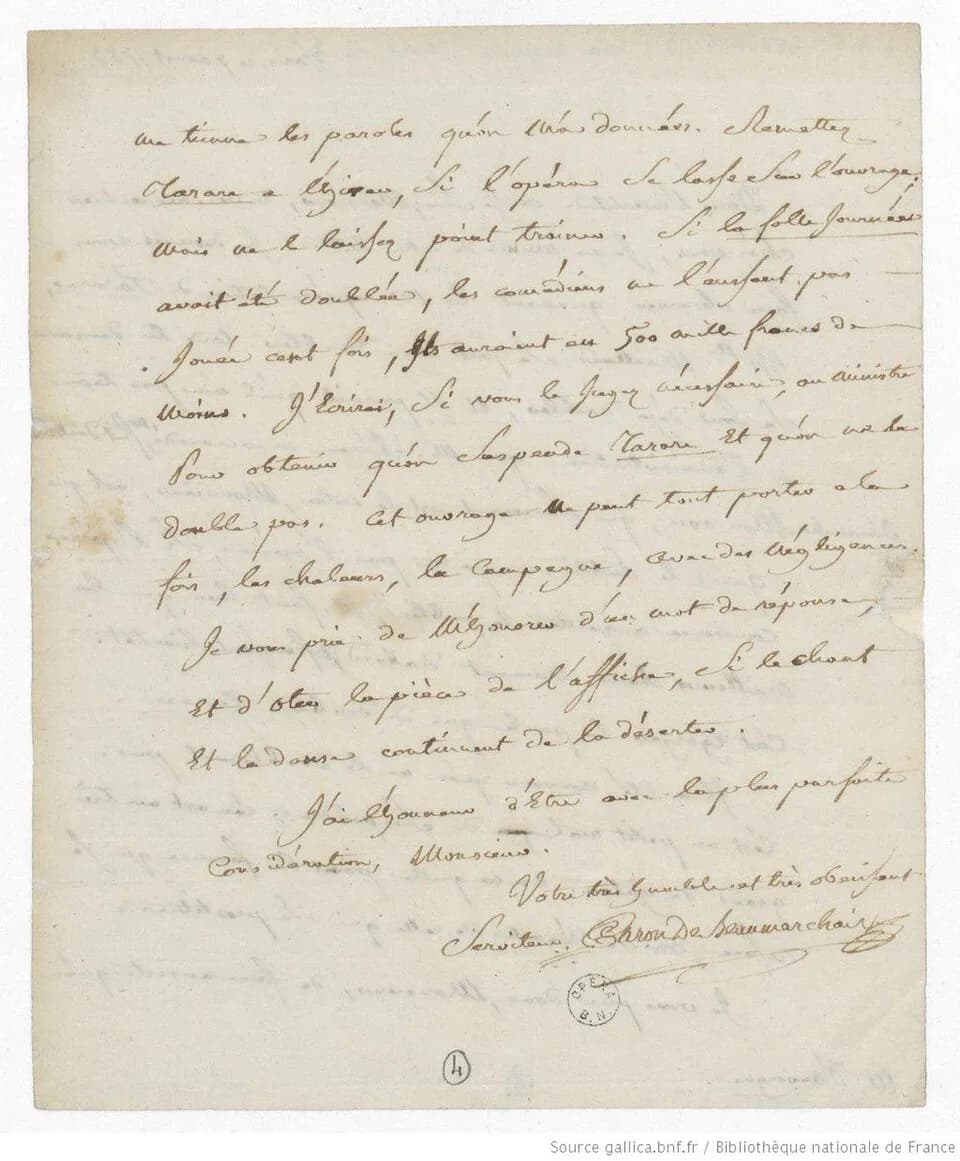 me tienne les paroles qu'on m'a données. Remettez
Tarare a l'hiver, Si l'opéra se lasse de l'ouvrage;
mais ne le laissez point trainer. Si la folle Journée
avait été doublée, les comédiens ne l'eussent pas
Jouée cent fois, Ils auraient eu 500 mille francs de
moins. J'Ecrirai, Si vous le Jugez nécessaire, au ministre
Pour obtenir qu'on Suspende Tarare Et qu'on ne le
double pas. Cet ouvrage ne peut tout porter a la
fois, les chaleurs, la Campagne, avec des négligences.
Je vous prie de m'honorer d'un mot de réponse,
Et d'oter la pièce de l'affiche, Si le chant
Et la danse continuent de la déserter.
J'ai l'honneur d'Etre avec la plus parfaite
Considération, Monsieur.
Votre très humble et très obeissant
Serviteur, Caron De Beaumarchais
OPERA
B.N.
4
Source gallica.bnf.fr / Bibliothèque nationale de France